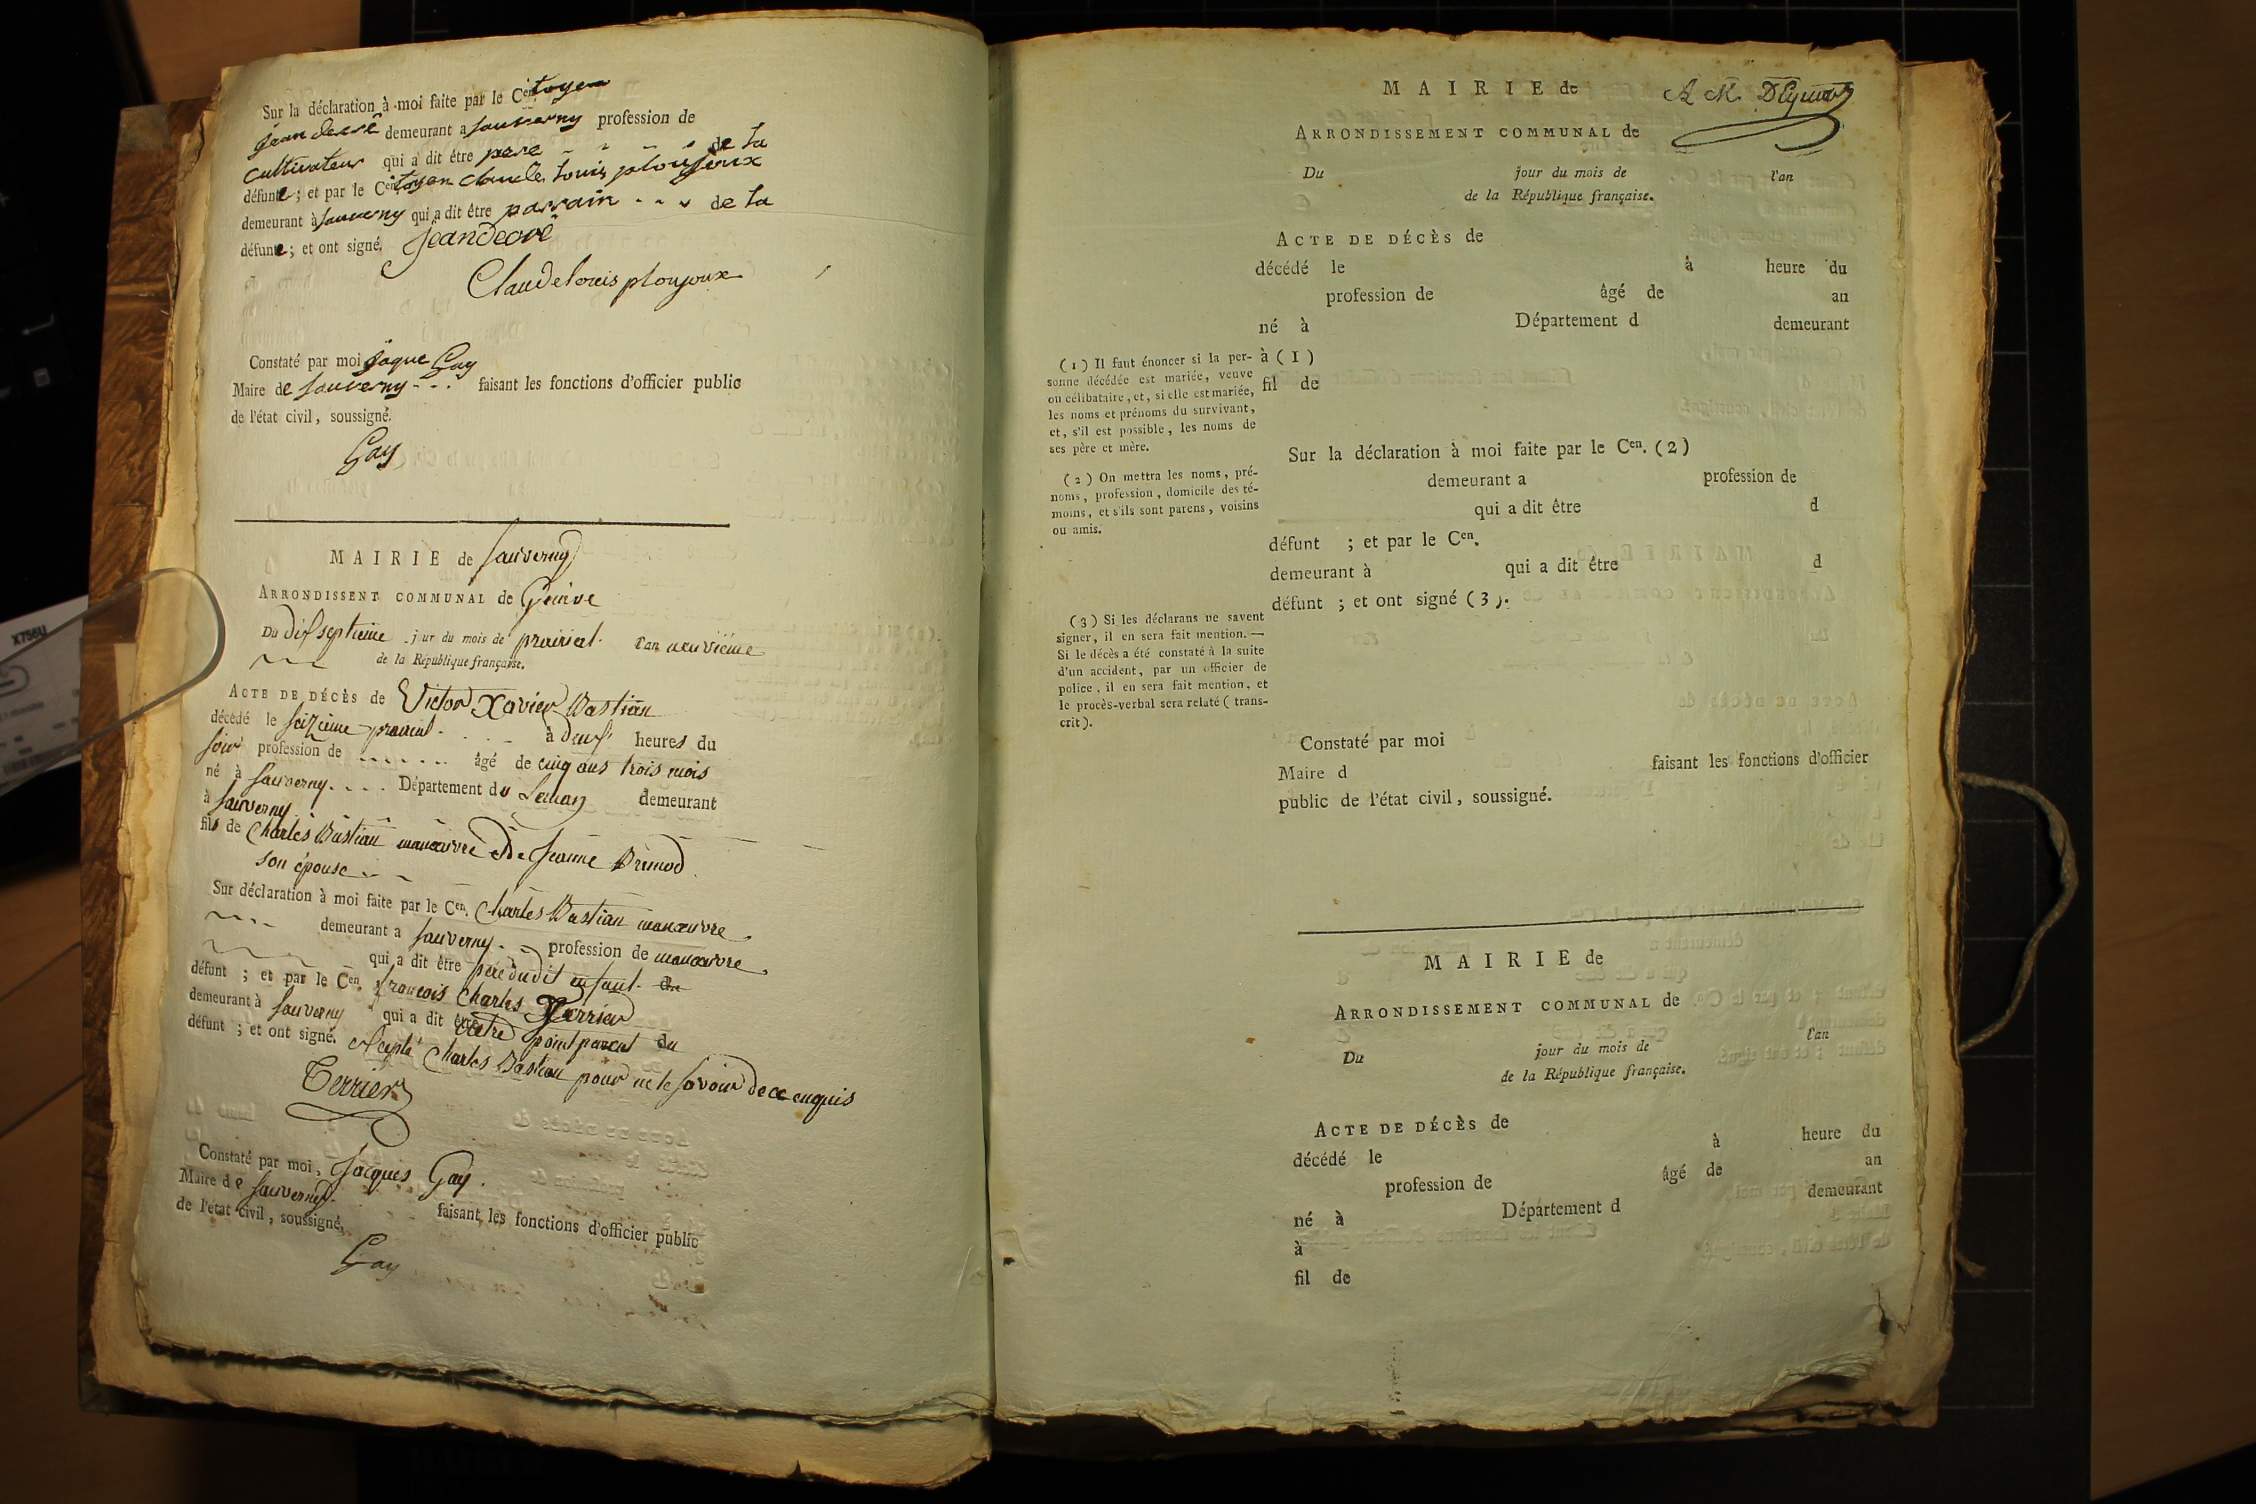 Sur la déclaration à moi faite par le Cen. toyen
jean demeurant a sauverny profession de
cultivateur qui a dit être pere de la
défunte ; et par le Cen. toyen claude louis ploujoux
demeurant à sauverny qui a dit être parrain de la
défunte ; et ont signé.
Claude louis ploujoux
Constaté par moi jaque Gay
Maire de sauverny - - - faisant les fonctions d'officier public
de l'état civil, soussigné.
Gay
MAIRIE de Sauverny
ARRONDISSENT COMMUNAL de Genève
Du dixseptieme jour du mois de prairial l'an neuvieme
de la République française.
ACTE DE DÉCÈS de Victor Xavier Bastian
décédé le seizieme prairial - - - à deux heures du
soir profession de - - - - - - âgé de cinq ans trois mois
né à Sauverny - - - - Département du Leman demeurant
à Sauverny
fils de Charles Bastian manœuvre et de Jeanne
son épouse - -
Sur déclaration à moi faite par le Cen. Charles Bastian manœuvre
demeurant a Sauverny - - profession de manœuvre
qui a dit être père dudit enfant.
défunt ; et par le Cen. françois Charles Terrier
demeurant à Sauverny qui a dit être point parent du
défunt ; et ont signé. Charles Bastian pour ne le savoir de ce enquis
Terrier
Constaté par moi, Jacques Gay.
Maire de Sauverny. faisant les fonctions d'officier public
de l'état civil, soussigné.
Gay
MAIRIE de
ARRONDISSEMENT COMMUNAL de
Du jour du mois de l'an
de la République française.
ACTE DE DÉCÈS de
décédé le à heure du
profession de âgé de an
né à Département d demeurant
à (1)
fil de
(1) Il faut énoncer si la per-
sonne décédée est mariée, veuve
ou célibataire, et, si elle est mariée,
les noms et prénoms du survivant,
et, s'il est possible, les noms de
ses père et mère.
Sur la déclaration à moi faite par le Cen. (2)
demeurant a profession de
qui a dit être d
défunt ; et par le Cen.
demeurant à qui a dit être d
défunt ; et ont signé (3).
(2) On mettra les noms, pré-
noms, profession, domicile des té-
moins, et s'ils sont parens, voisins
ou amis.
(3) Si les déclarans ne savent
signer, il en sera fait mention. —
Si le décès a été constaté à la suite
d'un accident, par un officier de
police, il en sera fait mention, et
le procès-verbal sera relaté (trans-
crit).
Constaté par moi
Maire d faisant les fonctions d'officier
public de l'état civil, soussigné.
MAIRIE de
ARRONDISSEMENT COMMUNAL de
Du jour du mois de l'an
de la République française.
ACTE DE DÉCÈS de
décédé le à heure du
profession de âgé de an
né à Département d demeurant
à
fil de
X756U